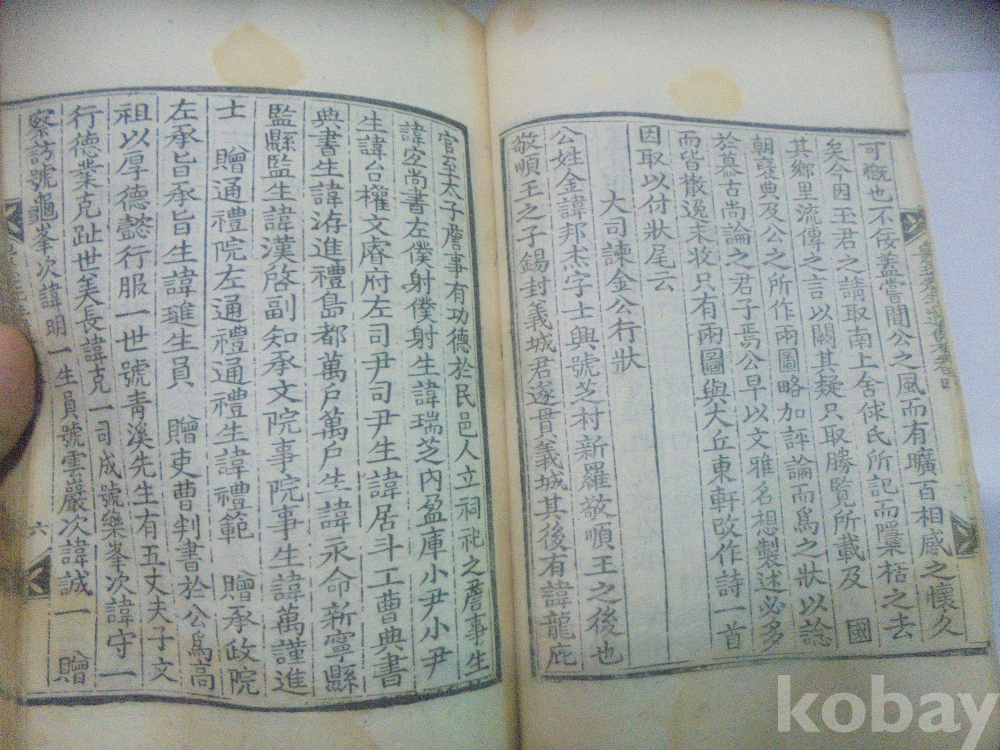 可慨也不佞蓋嘗聞公之風而有曠百相感之懷久
矣今因王君之請取南上舍俅氏所記而檃栝之去
其鄉里流傳之言以闕其疑只取勝覽所載及 國
朝褒典及公之所作兩圖略加評論而爲之狀以諗
於慕古尚論之君子焉公早以文雅名想製述必多
而皆散逸未收只有兩圖與大丘東軒改作詩一首
因取以付狀尾云
大司諫金公行狀
公姓金諱邦杰字士興號芝村新羅敬順王之後也
敬順王之子錫封義城君遂貫義城其後有諱龍庇
官至太子詹事有功德於民邑人立祠祀之詹事生
諱宜尚書左僕射僕射生諱瑞芝內盈庫小尹小尹
生諱台權文睿府左司尹司尹生諱居斗工曹典書
典書生諱洊進禮島都萬戶萬戶生諱永命新寧縣
監縣監生諱漢啓副知承文院事院事生諱萬謹進
士 贈通禮院左通禮通禮生諱禮範 贈承政院
左承旨承旨生諱璡生員 贈吏曹判書於公爲高
祖以厚德懿行服一世號靑溪先生有五丈夫子文
行德業克趾世美長諱克一司成號藥峯次諱守一
察訪號龜峯次諱明一生員號雲巖次諱誠一 贈
六
kobay